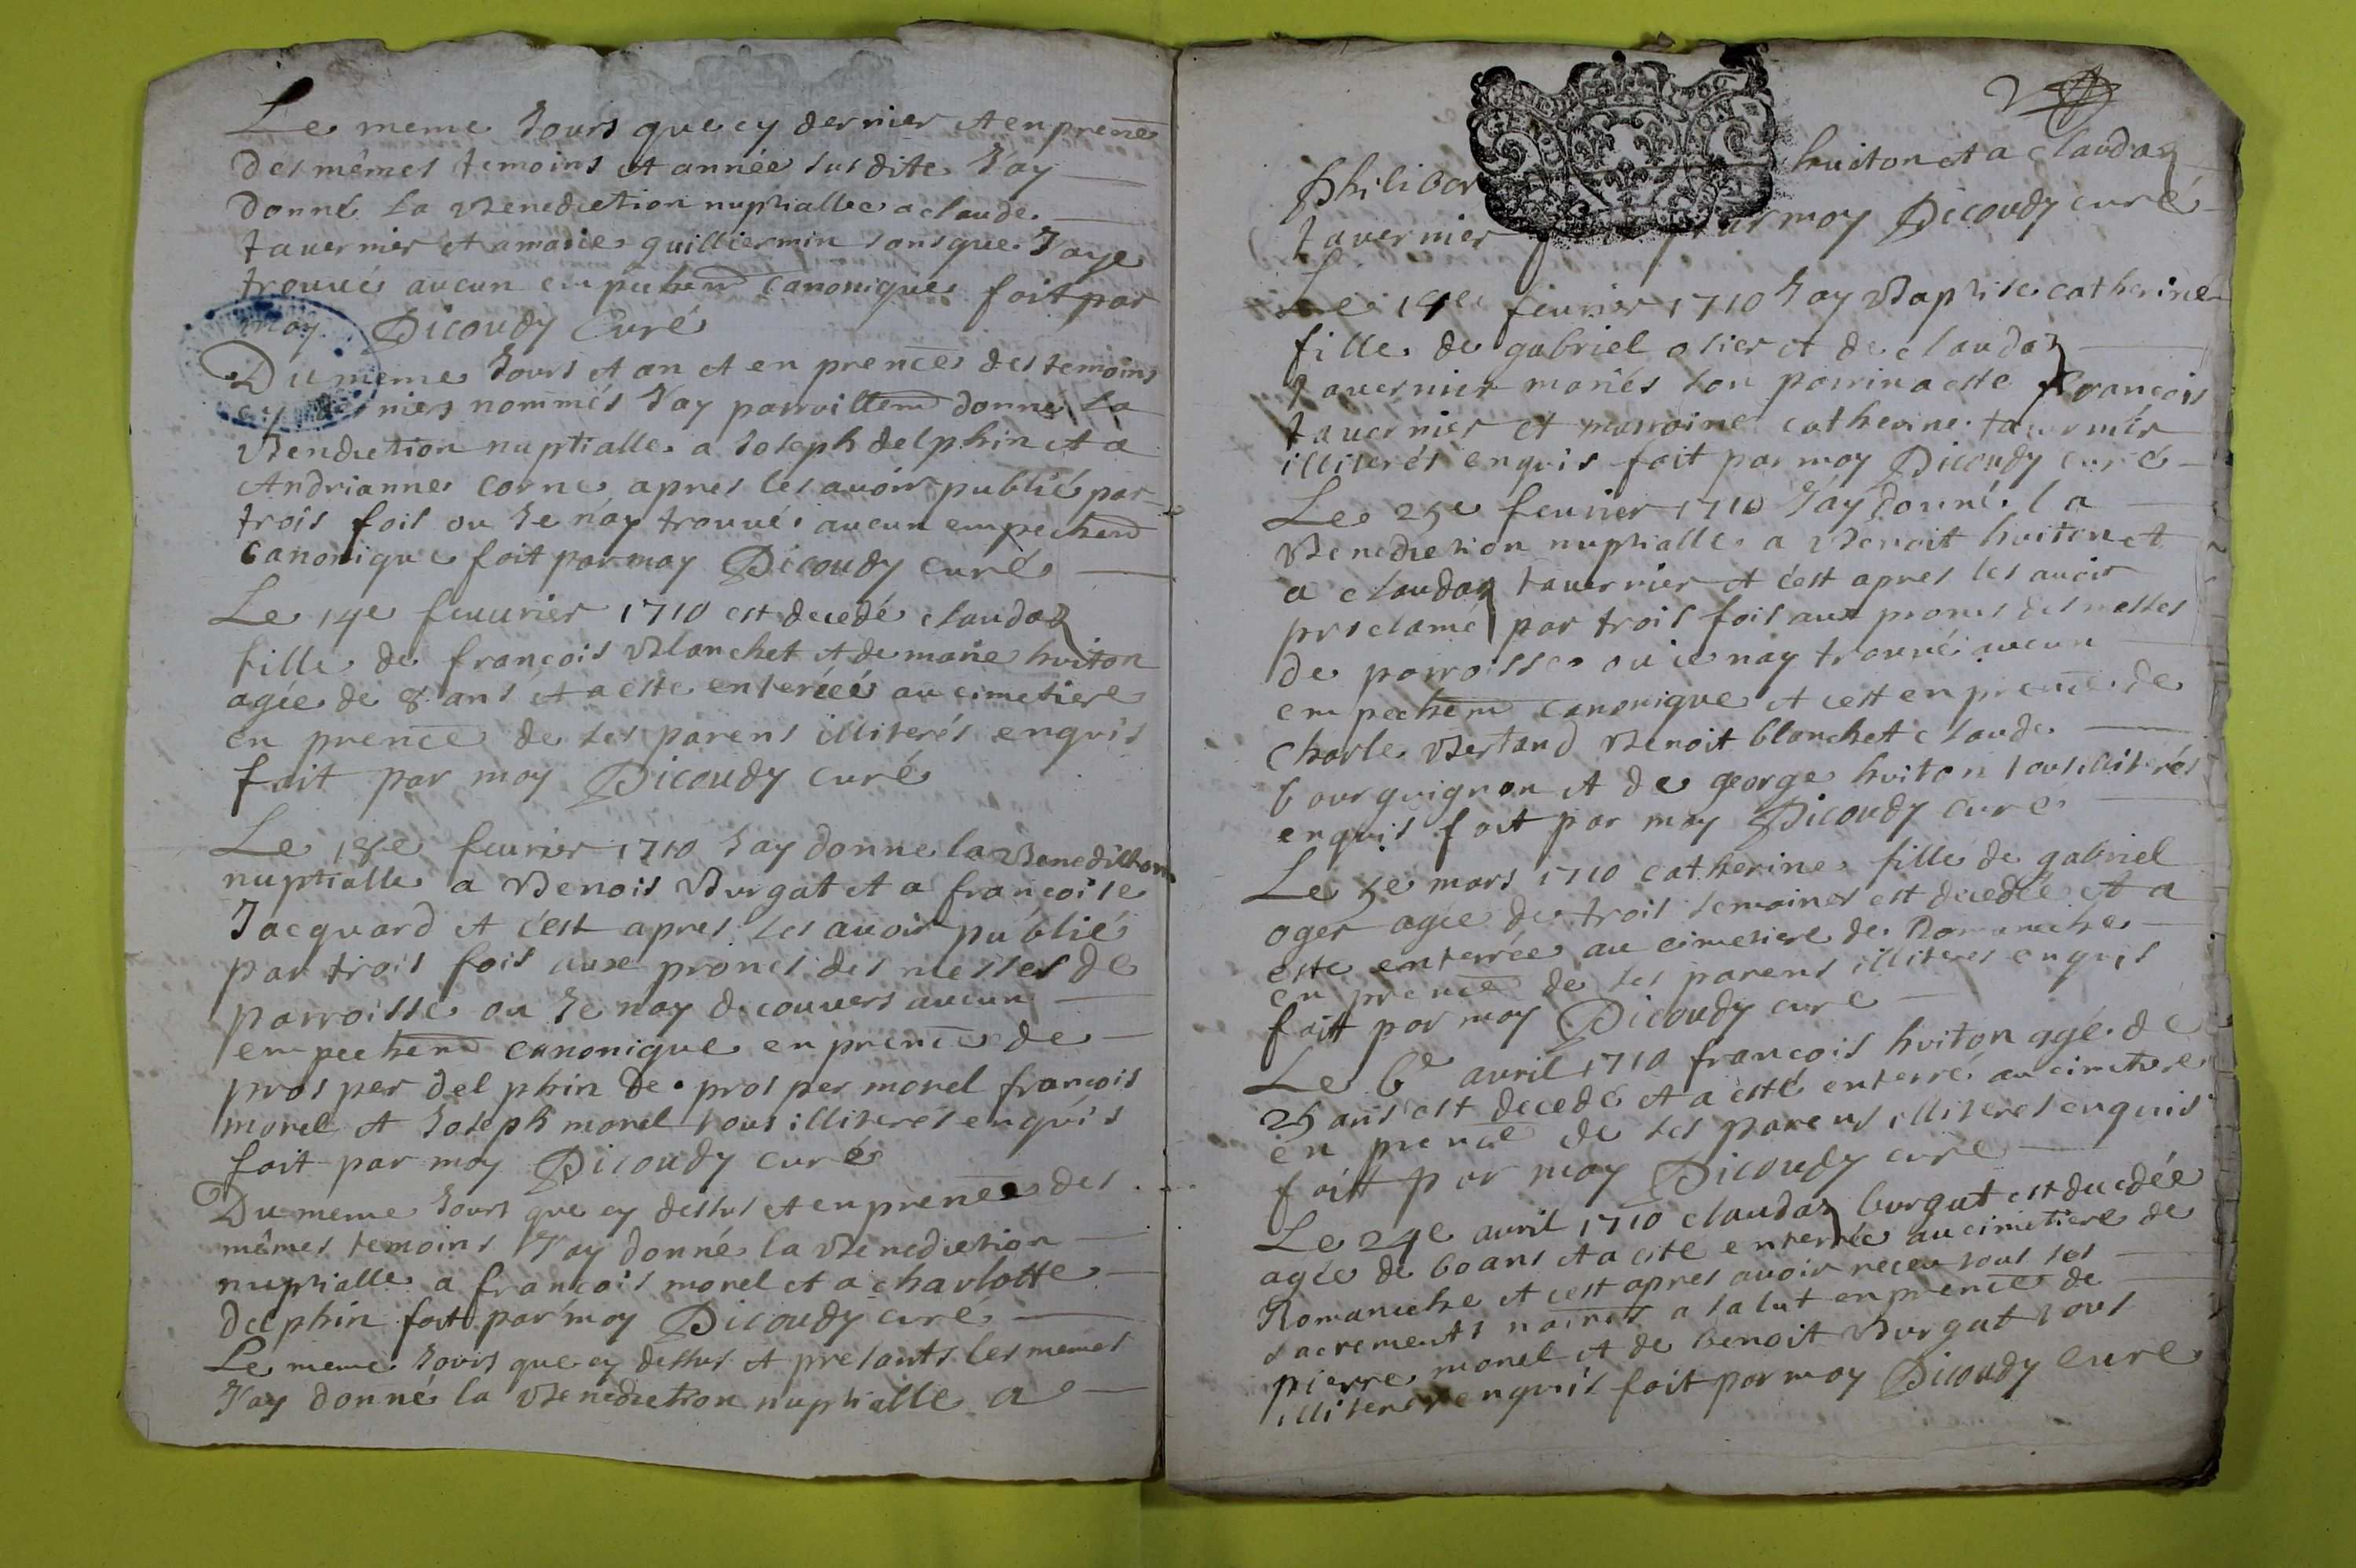 Le meme Jours que cy dernier et en prence
des mêmes temoins et année susdite Jay
donné la Benediction nuptialle a claude
tavernier et a marie guilliermin sans que J'aye
trouvé aucun empechemt canonique fait par
moy Dicoudy Curé
Du meme Jours et an et en prence des temoins
cy niers nommés Jay pareillemt donné la
Bendiction nuptialle a Joseph delphin et a
Andrianne corne apres les avoir publié par
trois fois ou Je nay trouvé aucun empechemt
Canonique fait par moy Dicoudy curé
Le 14e feuvrier 1710 est decedé claudaz
fille de françois Blanchet et de marie huiton
agée de 8 ans et a esté enteréeé au cimetiere
en prence de ses parens illiterés enquis
fait par moy Dicoudy curé
Le 18e feuvrier 1710 Jay donne la Benediction
nuptialle a Benois Burgat et a françoise
Jacquard et c'est apres les avoir publié
par trois fois aux prones des messes de
parroisse ou Je nay decouvers aucun
empechemt canonique en prence de
prosper delphin de prosper morel françois
morel et Joseph morel tous illiterés enquis
fait par moy Dicoudy curé
Du meme Jours que cy dessus et en prence des
mêmes temoins J'ay donné la Benediction
nuptialle a françois morel et a charlotte
delphin fait par moy Dicoudy cure
Le meme Jours que cy dessus et presants les memes
J'ay donné la Benediction nuptialle a
2
Philiber huiton et a claudaz
tavernier par moy Dicoudy curé
Le 19e fevrier 1710 Jay Baptise catherine
fille de gabriel osier et de claudaz
tavernier mariés son parrin a esté françois
tavernier et marraine catherine tavernier
illiterés enquis fait par moy Dicoudy curé
Le 25e fevrier 1710 Jay donné la
Benediction nuptialle a Benoit huiton et
a claudaz tavernier et c'est apres les avoir
proclamé par trois fois aux prones des messes
de parroisse ou ie nay trouvé aucun
empechemt canonique et cest en prence de
charle Bertand Benoit blanchet claude
bourguignon et de george huiton tous illiterés
enquis fait par moy Dicoudy curé
Le 5e mars 1710 catherine fille de gabriel
oger agée de trois semaines est decedée et a
este enterrée au cimetiere de Romaneche
en prence de ses parens illiteres enquis
faitt par moy Dicoudy cure
Le 6e avril 1710 françois huiton agé de
25 ans est decedé et a esté enterré au cimetiere
en prence de ses parens illiteres enquis
faitt par moy Dicoudy cure
Le 24e avril 1710 claudaz burgat est decedée
agée de 60 ans et a esté enterrée au cimetiere de
Romaneche et cest apres avoir receu tous ses
sacrements a salut en prence de
pierre morel et de benoit Burgat tous
illiteres enquis fait par moy Dicoudy Cure